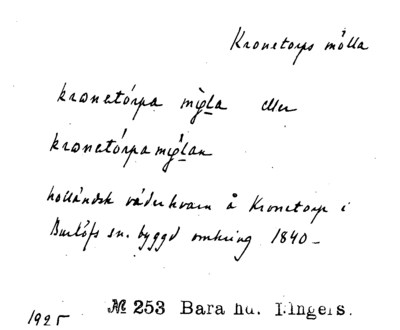 Kronetorps mölla
krɷnetórpa mỳlla eller
krɷnetórpa mỳllan
holländsk väderkvarn å Kronetorp i
Burlöfs sn. byggd omkring 1840 –
№ 253 Bara hd. I. Ingers.
1925